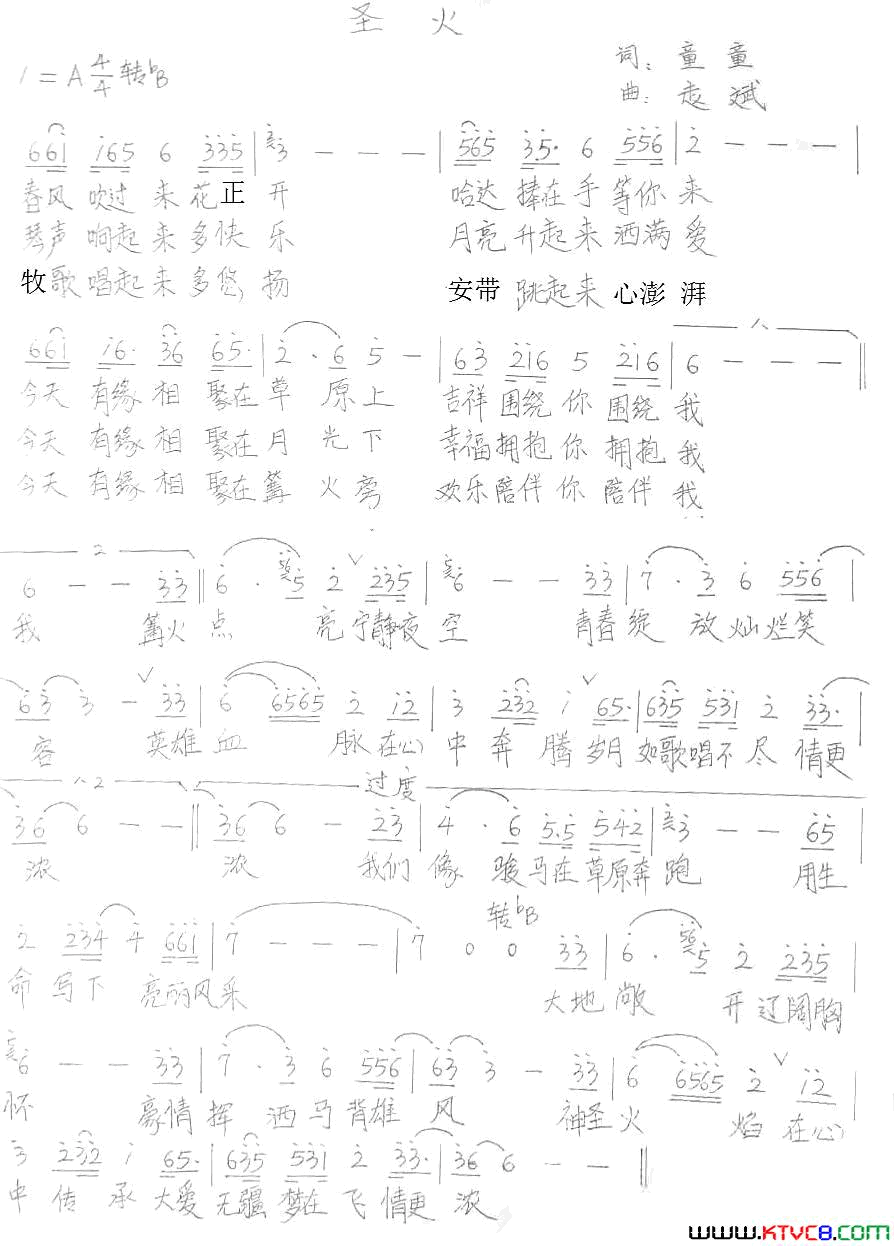 圣火
1=A 4/4 转bB
词：童童
曲：志斌
661 165 6 335 | 3 - - - | 565 35· 6 556 | 2 - - - |
春风 吹过 来 花正 开 哈达 捧在 手 等你 来
琴声 响起 来 多快 乐 月亮 升起 来 洒满 爱
牧歌 唱起 来 多悠 扬 安带 跳起 来 心澎 湃
661 16· 36 65· | 2 · 6 5 - | 63 216 5 216 | 6 - - - ‖
今天 有缘 相 聚在 草 原 上 吉祥 围绕 你 围绕 我
今天 有缘 相 聚在 月 光 下 幸福 拥抱 你 拥抱 我
今天 有缘 相 聚在 篝 火 旁 欢乐 陪伴 你 陪伴 我
2
6 - - 33 ‖ 6 · 5 2 235 | 6 - - 33 | 7 · 3 6 556 |
我 篝火 点 亮 宁静夜 空 青春 绽 放 灿烂笑
63 3 - 33 | 6 6565 2 12 | 3 232 1 65· | 635 531 2 33· |
容 英雄 血 脉 在心 中 奔 腾 岁月 如歌 唱不 尽 情更
2 过度
36 6 - - ‖ 36 6 - 23 | 4 · 6 5·5 542 | 3 - - 65 |
浓 浓 我们 像 骏马在 草原奔 跑 用生
转bB
2 234 4 661 | 7 - - - | 7 0 0 33 | 6 · 5 2 235 |
命 写下 亮丽风 采 大地 敞 开 辽阔胸
6 - - 33 | 7 · 3 6 556 | 63 3 - 33 | 6 6565 2 12 |
怀 豪情 挥 洒 马 背雄 风 神圣 火 焰 在心
3 232 1 65· | 635 531 2 33· | 36 6 - - ‖
中 传 承 大爱 无疆 梦在 飞 情更 浓
www.KTVC8.com